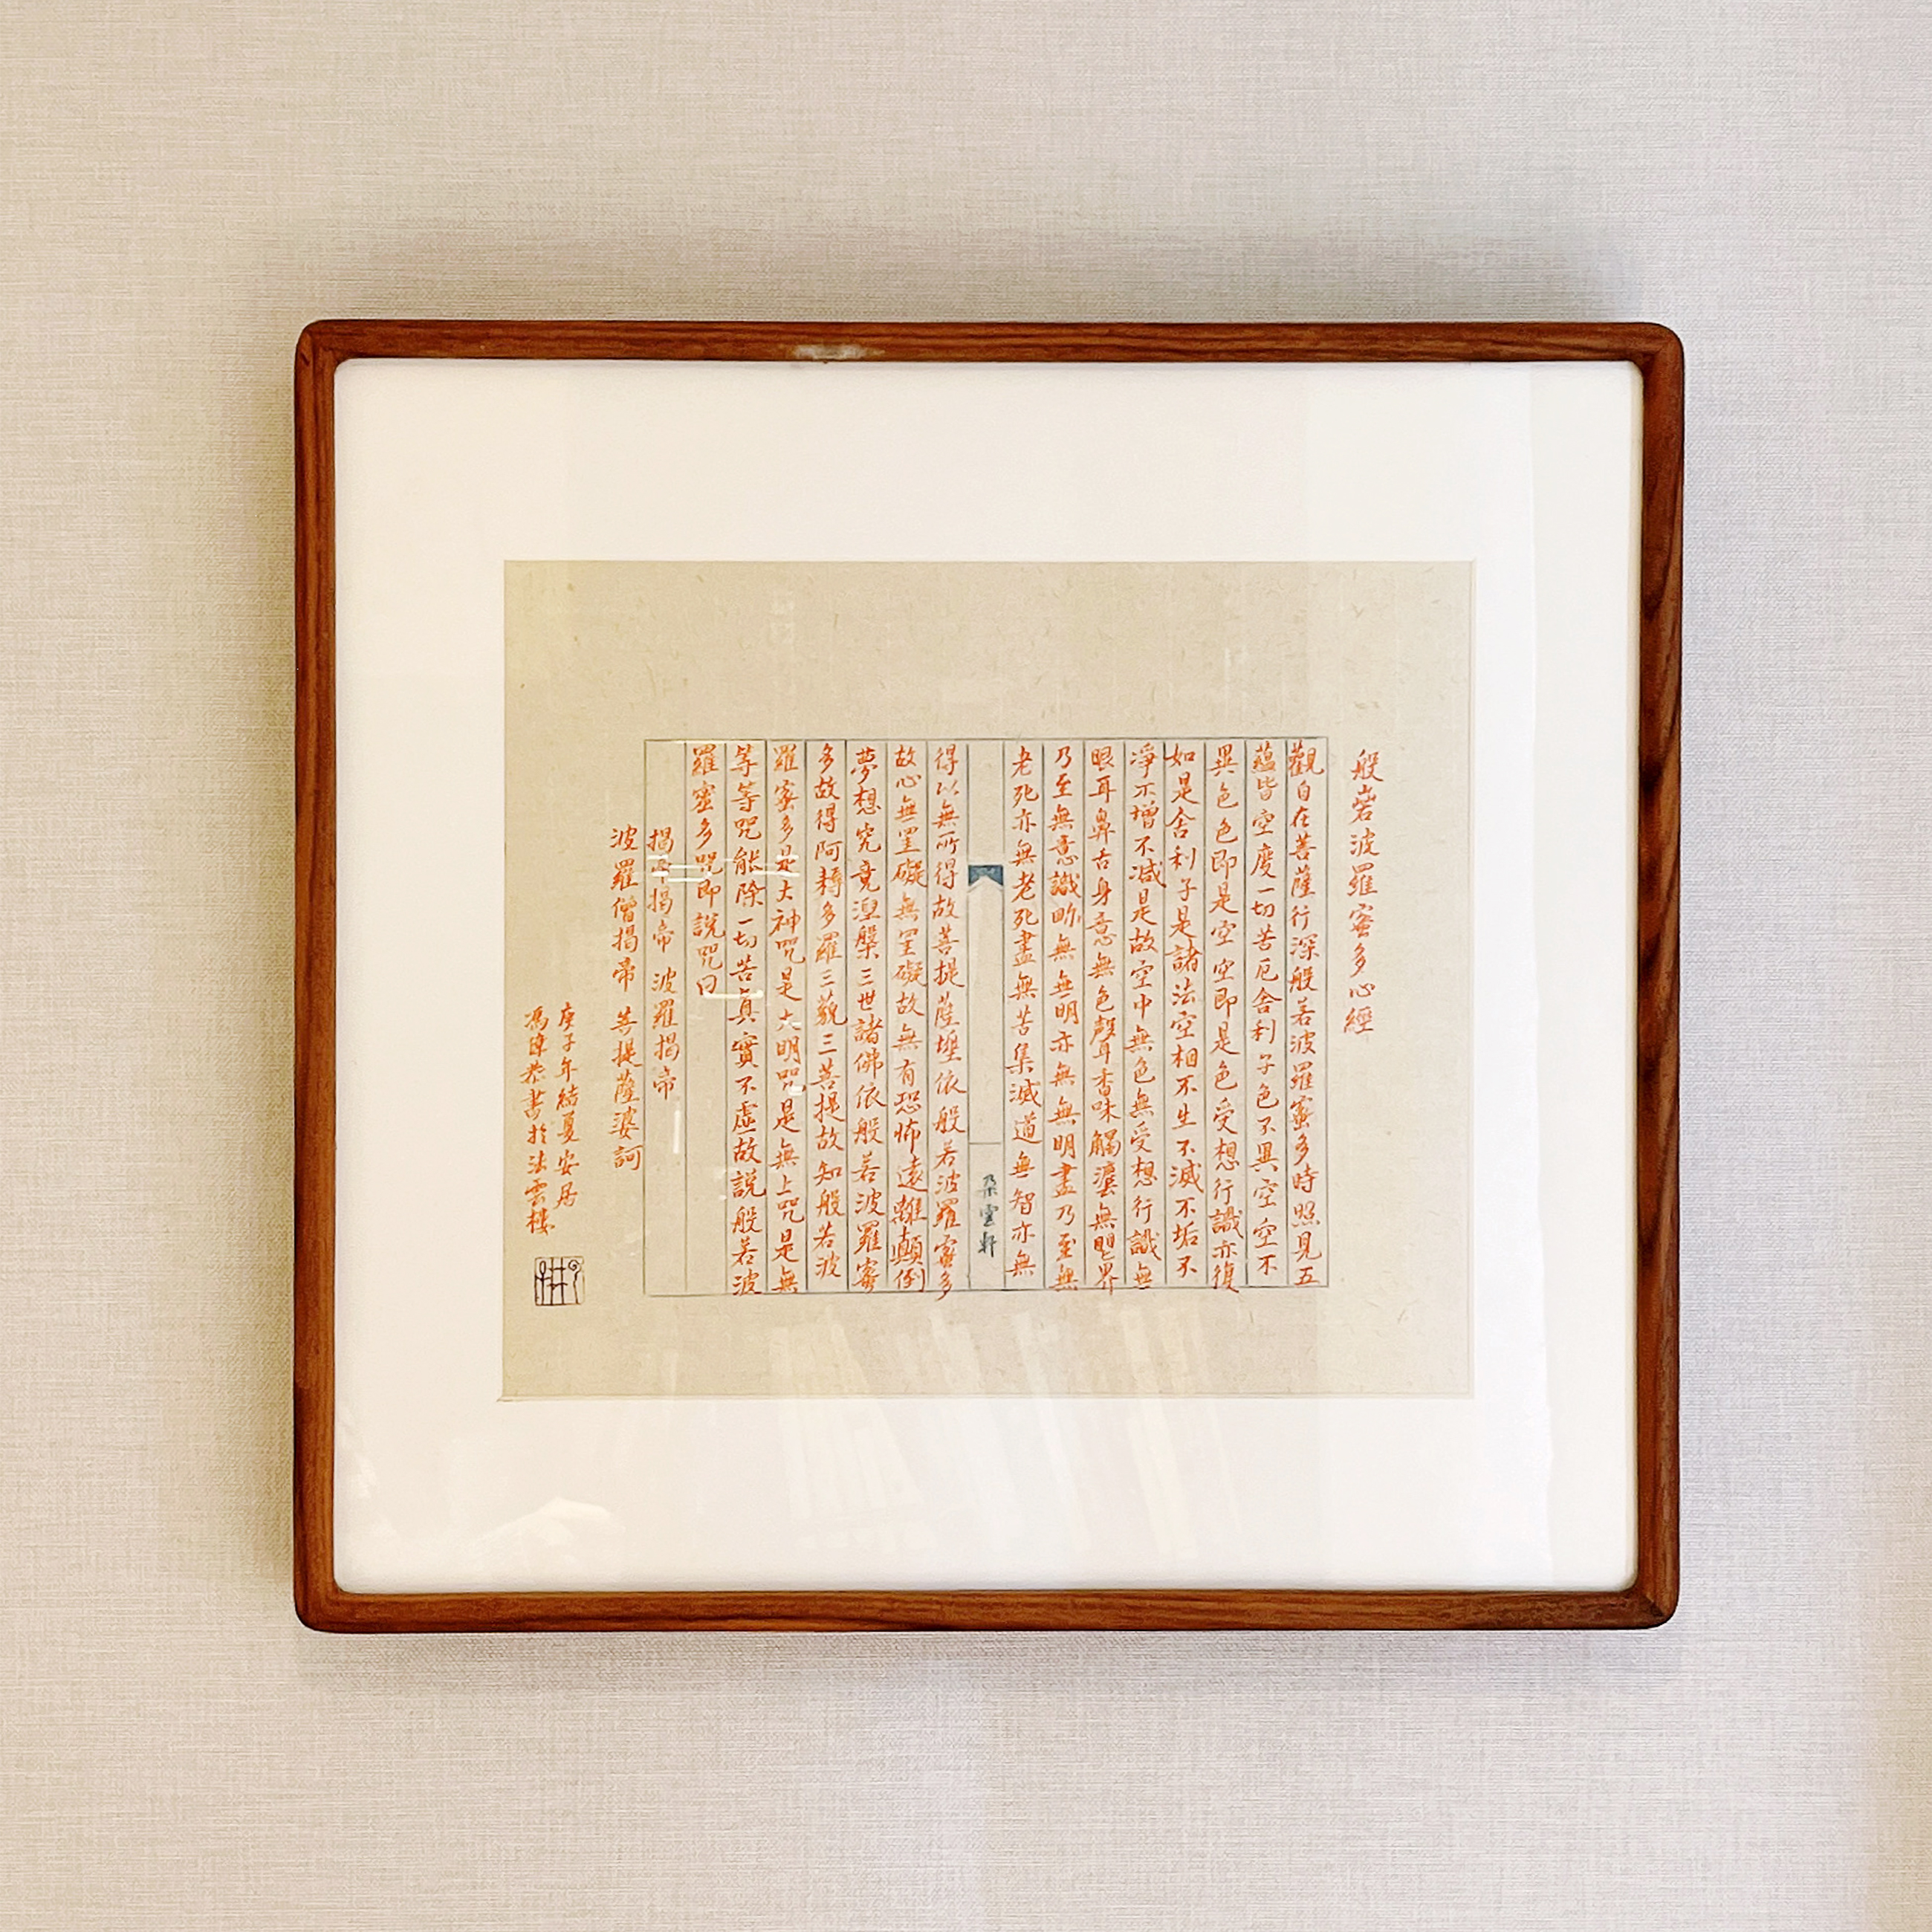 般若波羅蜜多心經
觀自在菩薩行深般若波羅蜜多時照見五
蘊皆空度一切苦厄舍利子色不異空空不
異色色即是空空即是色受想行識亦復
如是舍利子是諸法空相不生不滅不垢不
淨不增不減是故空中無色無受想行識無
眼耳鼻舌身意無色聲香味觸法無眼界
乃至無意識界無無明亦無無明盡乃至無
老死亦無老死盡無苦集滅道無智亦無
朵雲軒
得以無所得故菩提薩埵依般若波羅蜜多
故心無罣礙無罣礙故無有恐怖遠離顛倒
夢想究竟涅槃三世諸佛依般若波羅蜜
多故得阿耨多羅三藐三菩提故知般若波
羅蜜多是大神咒是大明咒是無上咒是無
等等咒能除一切苦真實不虛故說般若波
羅蜜多咒即說咒曰
揭帝揭帝 波羅揭帝
波羅僧揭帝 菩提薩婆訶
庚子年結夏安居
馮瑋恭書於法雲樓